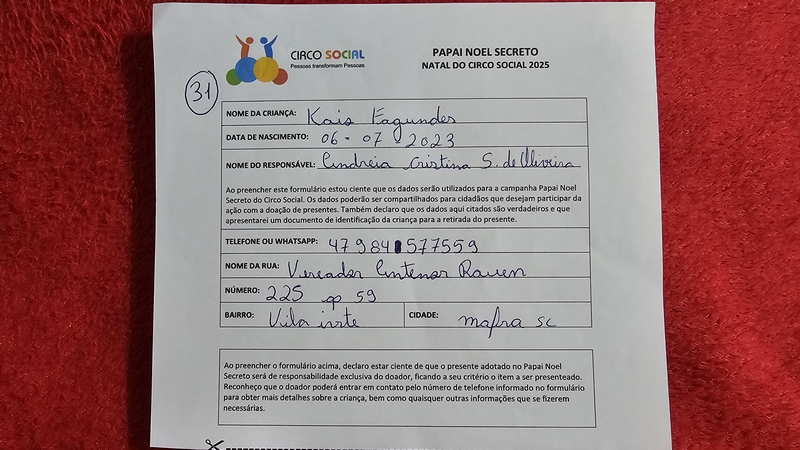 CIRCO SOCIAL
Pessoas transformam Pessoas
PAPAI NOEL SECRETO
NATAL DO CIRCO SOCIAL 2025
31
NOME DA CRIANÇA: Kaio Fagundes
DATA DE NASCIMENTO: 06-07-2023
NOME DO RESPONSÁVEL: Andreia Cristina S. de Oliveira
Ao preencher este formulário estou ciente que os dados serão utilizados para a campanha Papai Noel
Secreto do Circo Social. Os dados poderão ser compartilhados para cidadãos que desejam participar da
ação com a doação de presentes. Também declaro que os dados aqui citados são verdadeiros e que
apresentarei um documento de identificação da criança para a retirada do presente.
TELEFONE OU WHATSAPP: 47 984 577559
NOME DA RUA: Vereador Antenor Rauen
NÚMERO: 225 ap 59
BAIRRO: Vila CIDADE: mafra sc
Ao preencher o formulário acima, declaro estar ciente de que o presente adotado no Papai Noel
Secreto será de responsabilidade exclusiva do doador, ficando a seu critério o item a ser presenteado.
Reconheço que o doador poderá entrar em contato pelo número de telefone informado no formulário
para obter mais detalhes sobre a criança, bem como quaisquer outras informações que se fizerem
necessárias.